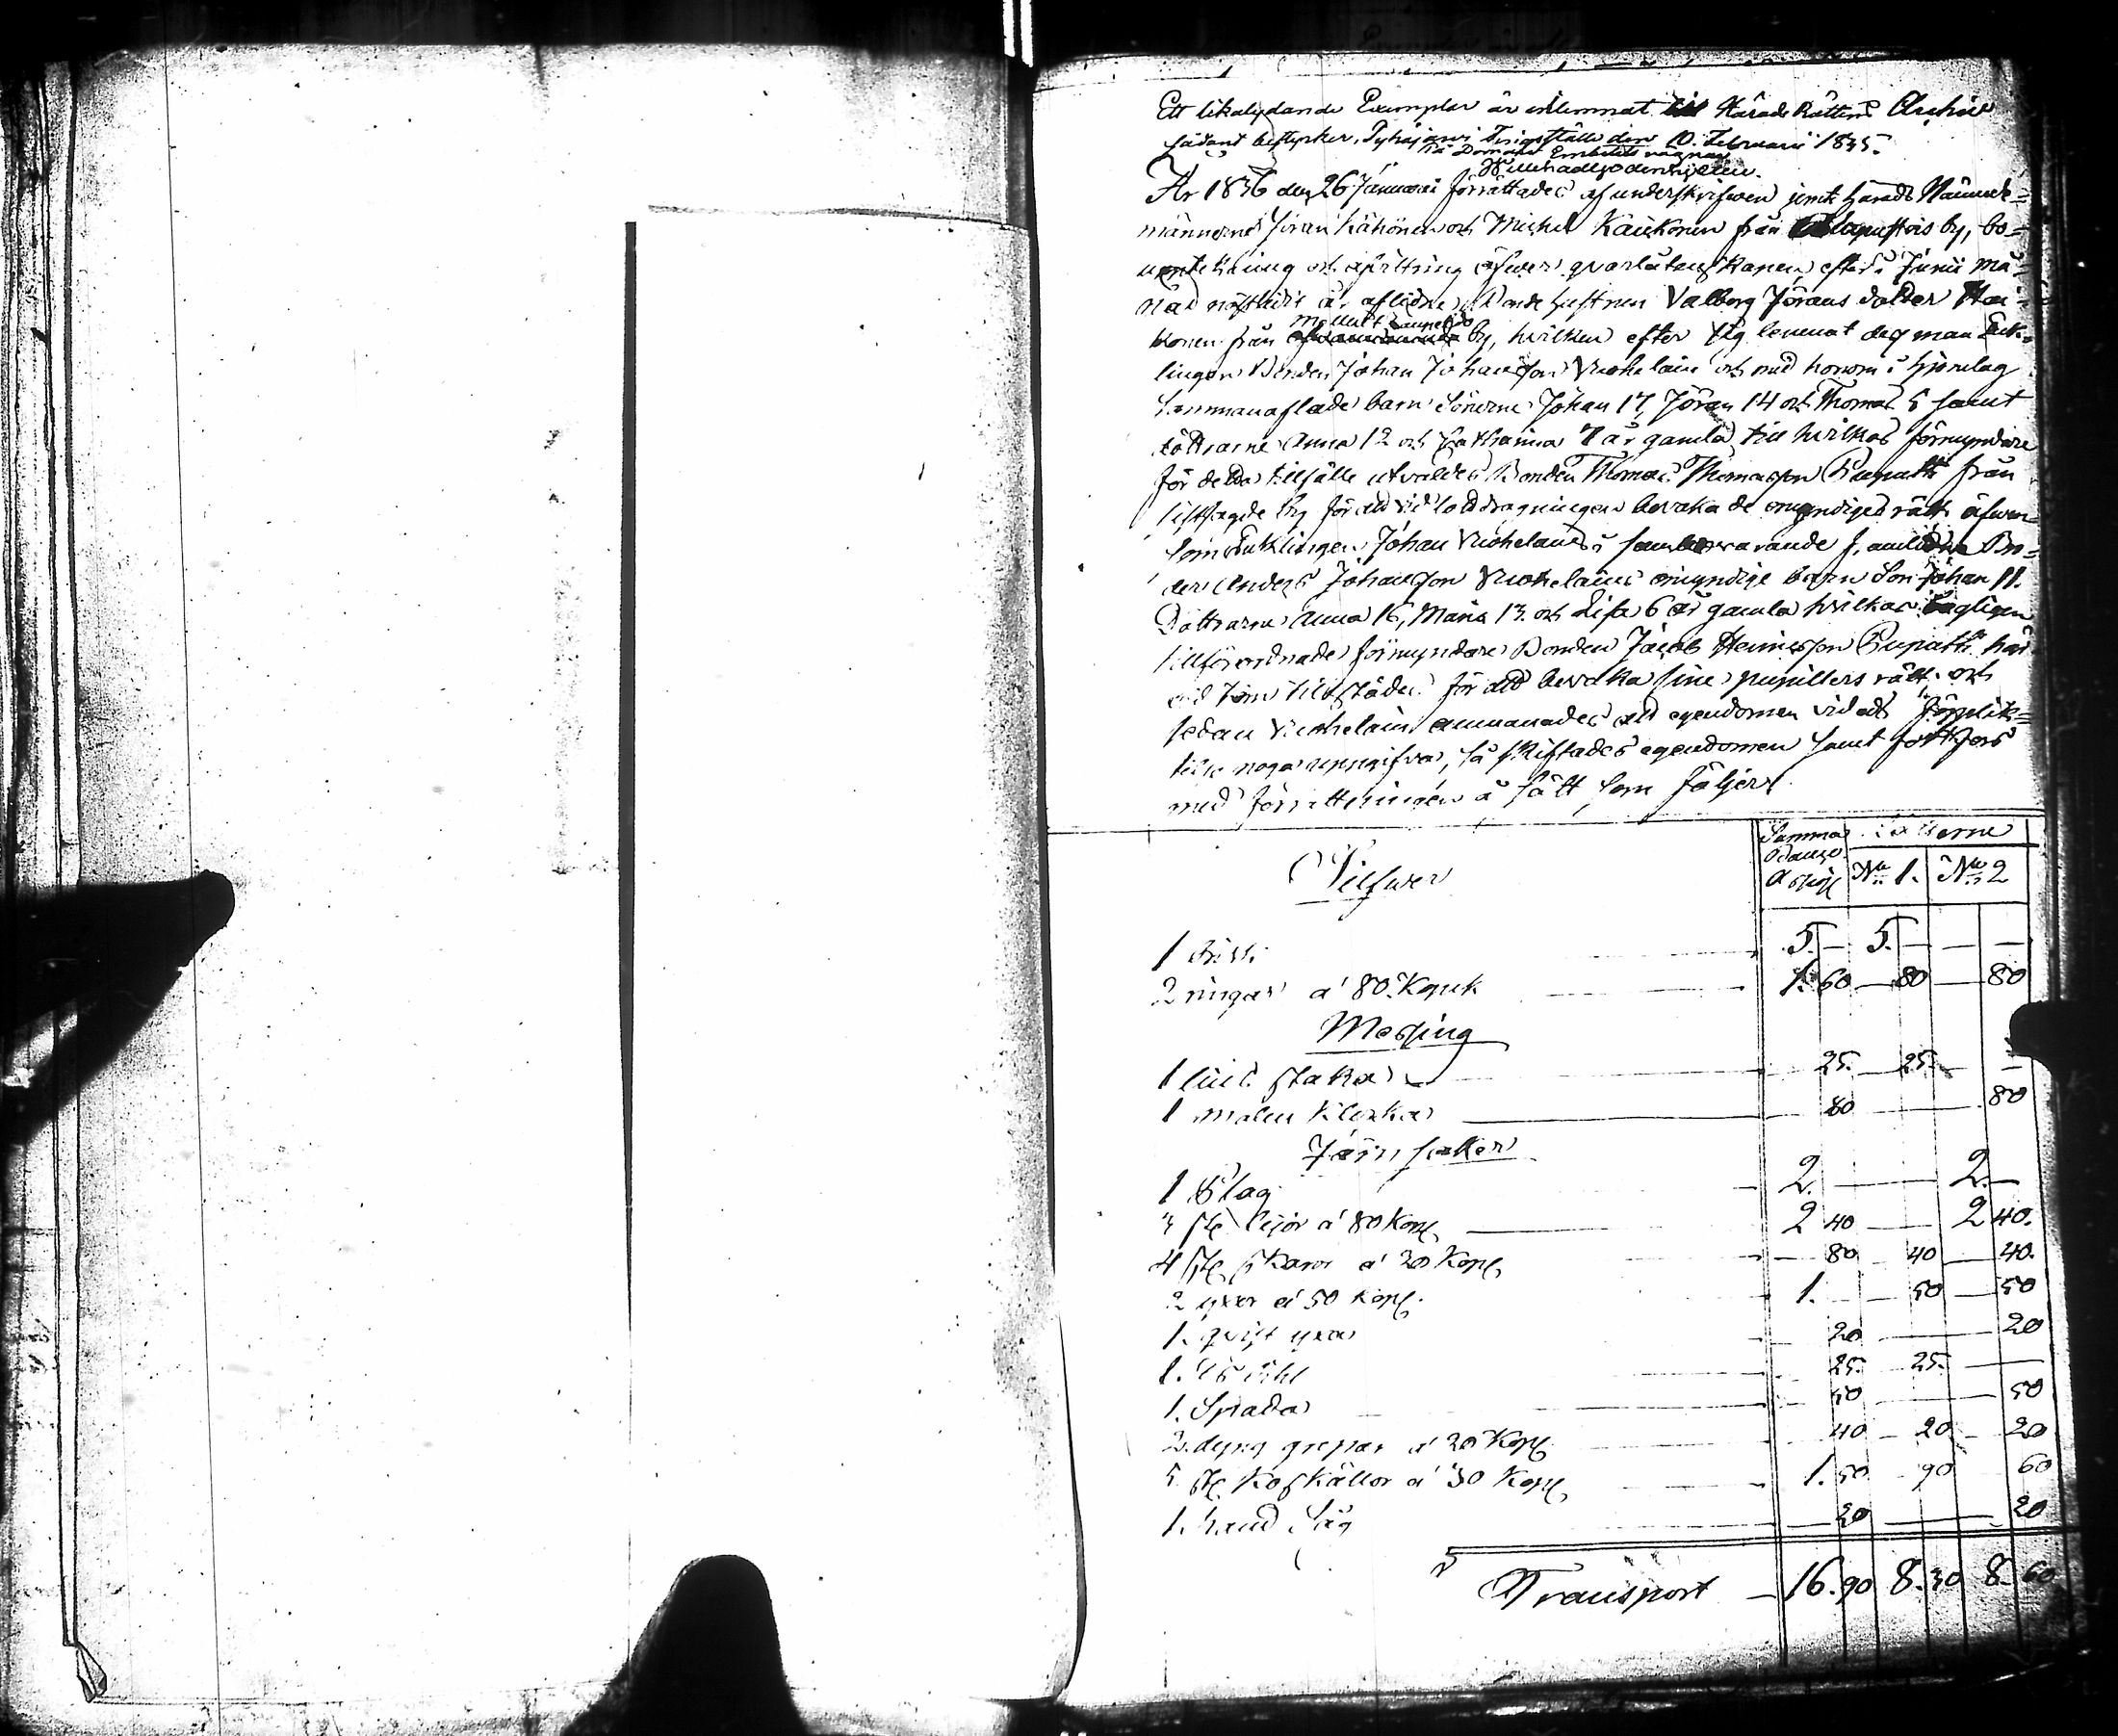 Ett likalydande Exemplar är inlemnat till Härads Rättens Archiv
sådant bestyrker, Pyhäjärvi Tingsställe den 10. Februarii 1835.
På Domare Embetets vägnar
År 1836 den 26 Januarii förrättades af underskrifwen jemte Härads Nämnde=
männerne Jöran Kähönen och Michel Kaukonen från by, bo=
uptekning och afwittring öfwer qvarlåtenskapen efter i Junii må=
nad nästledit år aflidne Bonde hustrun Valborg Jörans dotter Hai=
konen från by, hvilken efter sig lemnat des man Enk=
lingen Bonden Johan Johansson Vuohelain och med honom i hjonelag
sammanaflade barn Sönerne Johan 17, Jöran 14 och Thomas 5 samt
döttrarne Anna 12 och Catharina 7 år gamla, till hvilkas förmyndare
för detta tillfälle utvaldes Bonden Thomas Thomasson Rupatti från
sistsagde by för att vid lottdragningen bevaka de omyndiges rätt äfwen=
som Enklingen Johan Vuohelains i sambo varande f. aflidne Bro=
der Anders Johansson Vuohelains omyndige barn Son Johan 11.
Döttrarne Anna 16, Maria 13 och Lisa 6 år gamla hvilkas lagligen
tillförordnade förmyndare Bonden Jacob Heinrisson Rupatti här
vid kom tillstädes för att bevaka sine pupillers rätt. och
sedan Vuohelain anmanades att egendomen vid eds förplik=
telse noga uppgifva, så skiftades egendomen samt fortfors
med förrättningen å sätt som följer.
Samma Banco Assign
Lotterne
N:o 1. N:o 2
Silfwer
1 5. — 5. — — —
2 ringar a' 80. Kopek 1. 60 — 80 — 80
Messing
1 lius staka 25. 25. — —
1 malm klocka 80 80
Järn saker
1 Slag 2. — 2. —
3 st. lijor a' 80 Kop. 2 40 — 2 40.
4 st. skaror a' 20 Kop. — 80 40 — 40.
2 yxor a' 50 Kop. 1. — 50 — 50
1. qvist yxa 20 — 20
1. 25. 25. —
1. Spada 50 — 50
2. dyng grepar a' 20 Kop. 40 — 20 — 20
5 st. Koskällor a' 30 Kop. 1. 50 90 60
1. hand Såg — 20 — 20
Transport — 16. 90 8. 30 8. 60